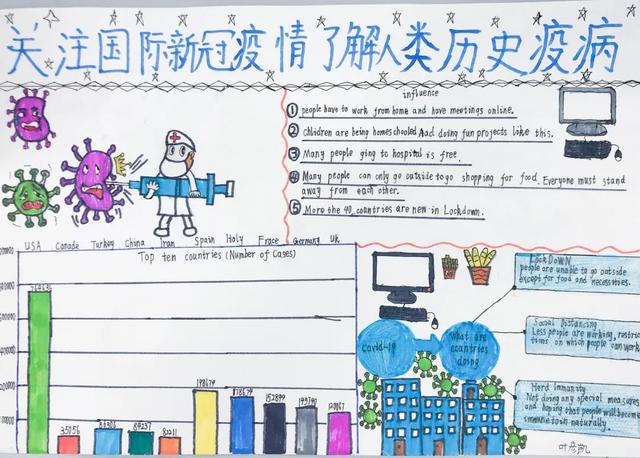 关注国际新冠疫情了解人类历史疫病
influence
① people have to work from home and have meetings online.
② Children are being homeschooled And doing fun projects like this.
③ Many people going to hospital is free.
④ Many people can only go outside to go shopping for food. Everyone must stand
away from each other.
⑤ More the 40 countries are now in Lockdown.
USA Canada Turkey China Iran Spain Italy France Germany UK
Top ten countries (Number of Cases)
35056
82211
Covid-19
What are
countries
doing
LockDOWN
people are unable to go outside
except for food and necessities.
Social Distancing
Less people are working, restric
tions on which people can work
Herd Immunity
Not doing any special measures
and hoping that people will become
immune to in naturally.
叶彦凯